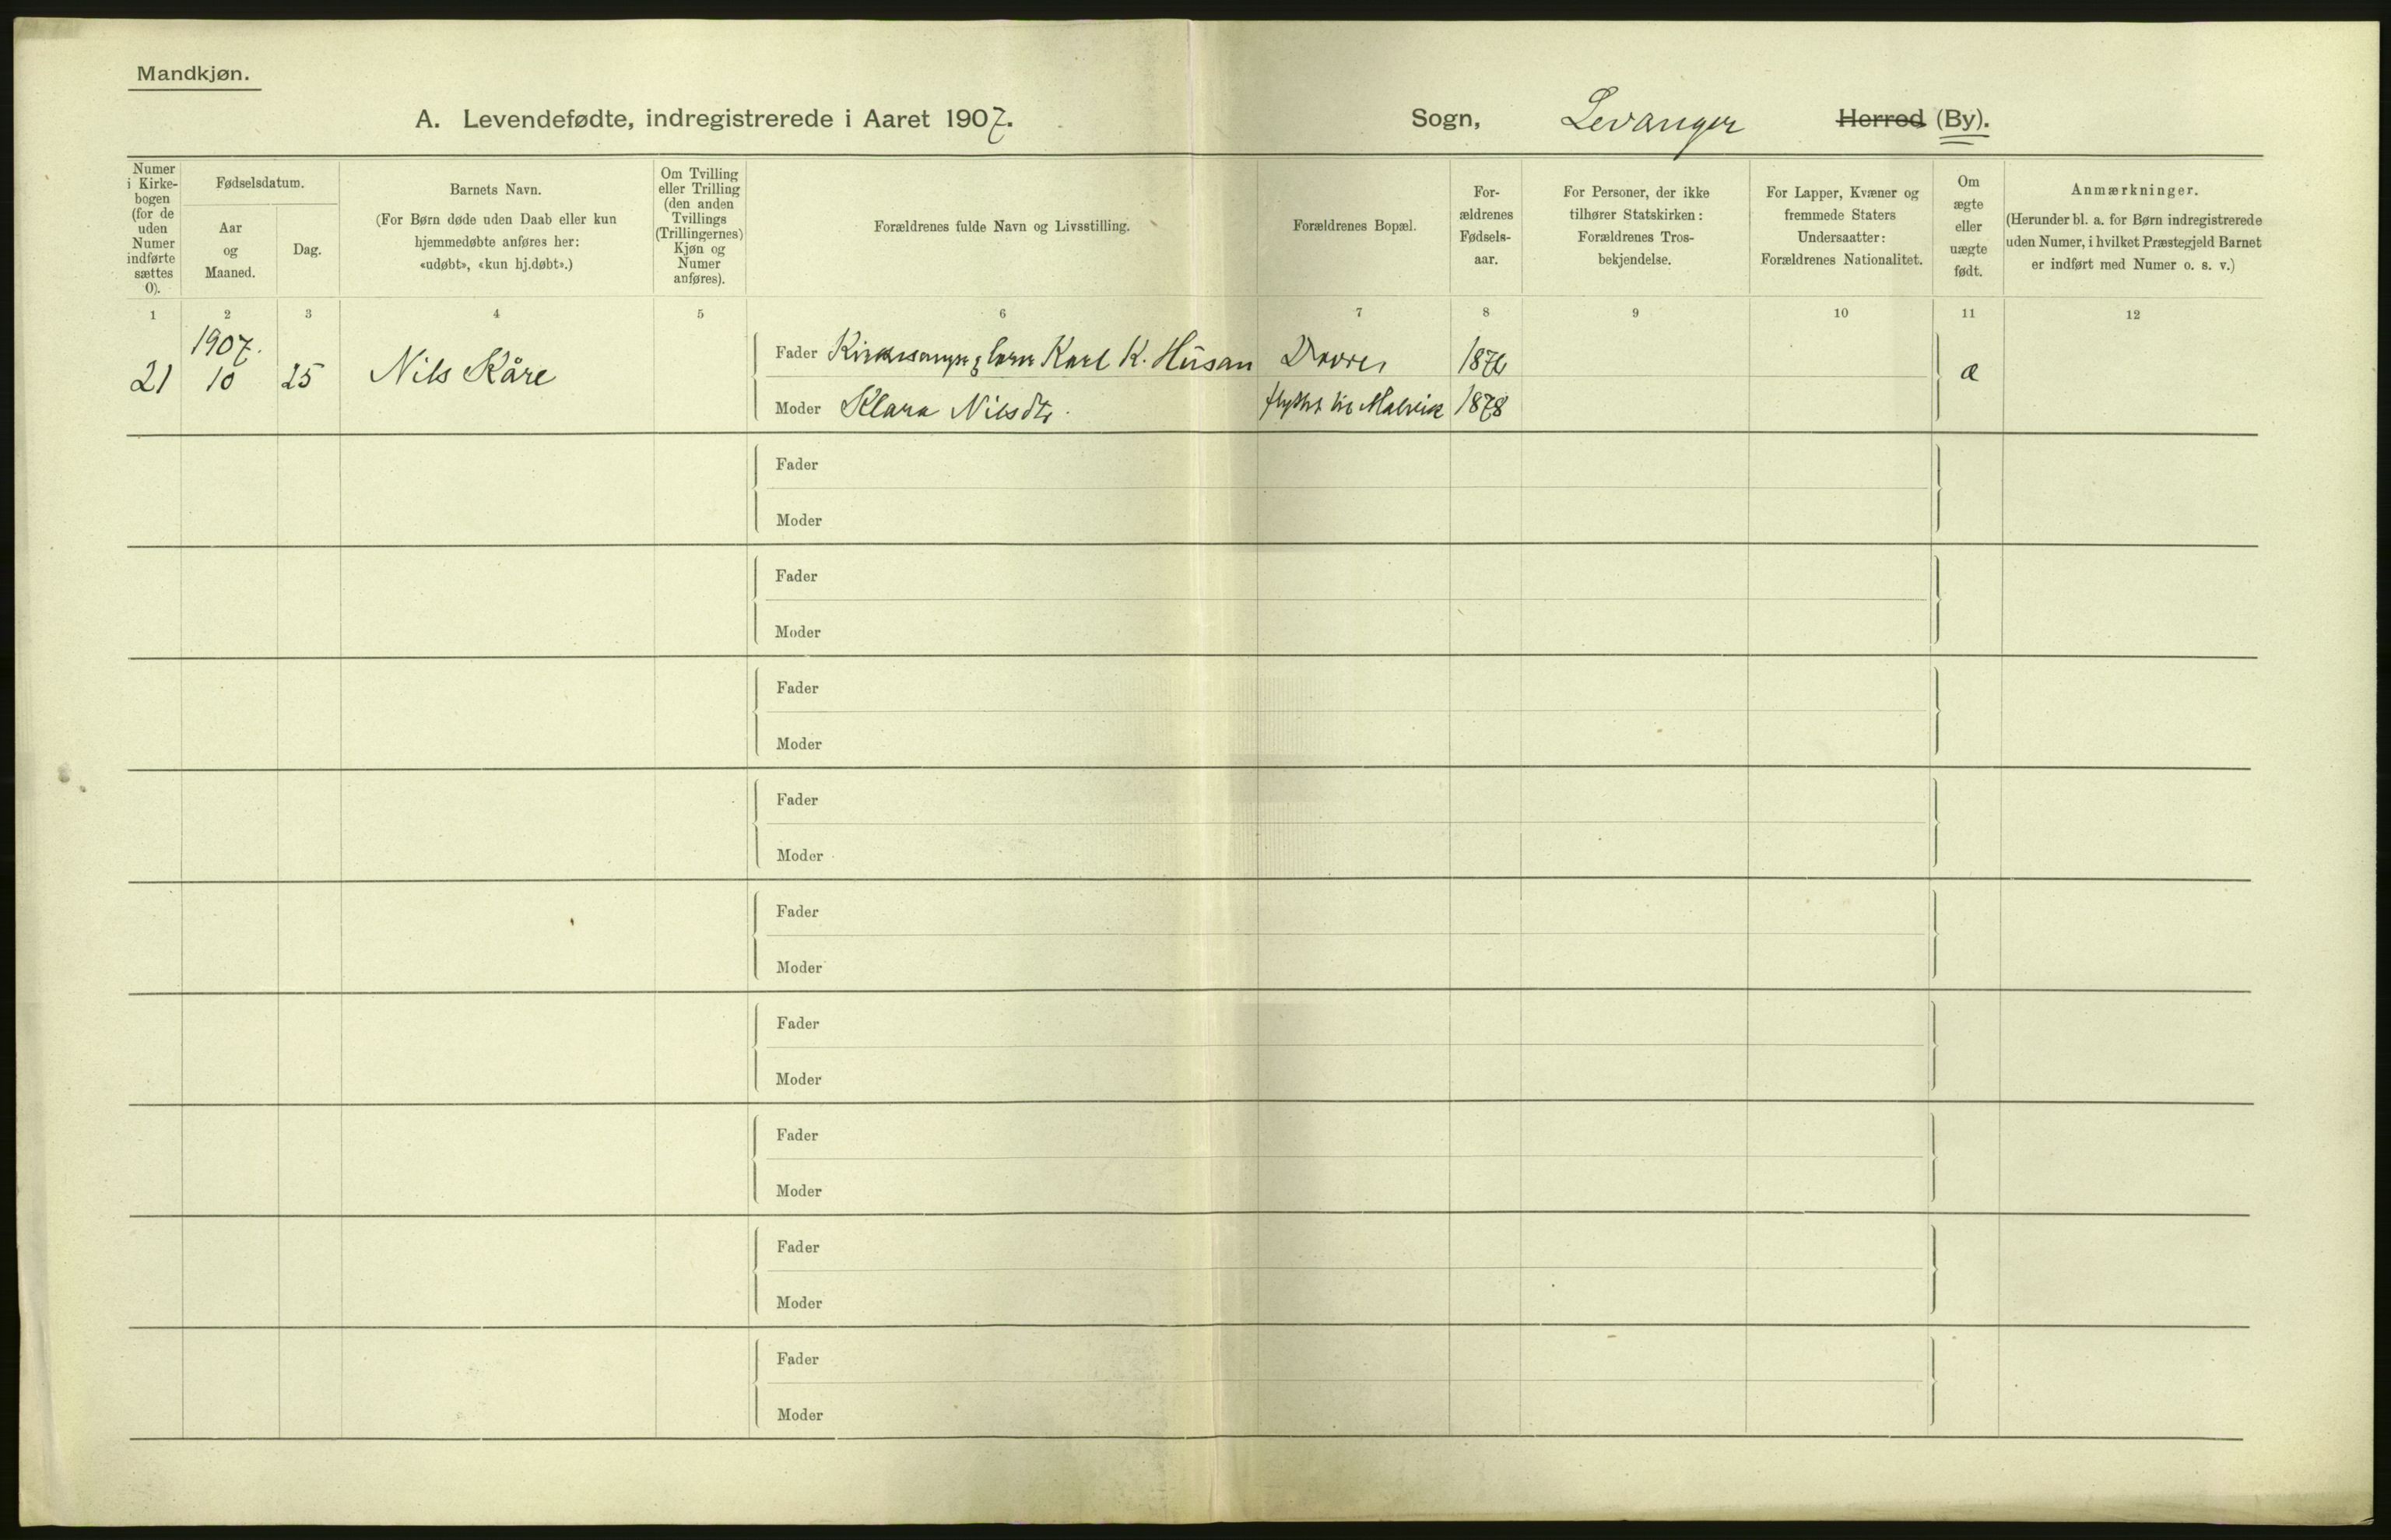 Mandkjøn.
A. Levendefødte, indregistrerede i Aaret 1907.
Sogn, Levanger Herred (By).
Numer
i Kirke-
bogen
(for de
uden
Numer
indførte
sættes
0).
Fødselsdatum.
Aar
og
Maaned.
Dag.
Barnets Navn.
(For Børn døde uden Daab eller kun
hjemmedøbte anføres her:
«udøbt», «kun hj.døbt».)
Om Tvilling
eller Trilling
(den anden
Tvillings
(Trillingernes)
Kjøn og
Numer
anføres).
Forældrenes fulde Navn og Livsstilling.
Forældrenes Bopæl.
For-
ældrenes
Fødsels-
aar.
For Personer, der ikke
tilhører Statskirken:
Forældrenes Tros-
bekjendelse.
For Lapper, Kvæner og
fremmede Staters
Undersaatter:
Forældrenes Nationalitet.
Om
ægte
eller
uægte
født.
Anmærkninger.
(Herunder bl. a. for Børn indregistrerede
uden Numer, i hvilket Præstegjeld Barnet
er indført med Numer o. s. v.)
1 2 3 4 5 6 7 8 9 10 11 12
1907.
21 10 25 Nils Kåre
Fader Kirkesanger Karl K. Husan
Moder Klara Nilsdtr. flyttet til Malvik 1878
æ
Fader
Moder
Fader
Moder
Fader
Moder
Fader
Moder
Fader
Moder
Fader
Moder
Fader
Moder
Fader
Moder
Fader
Moder